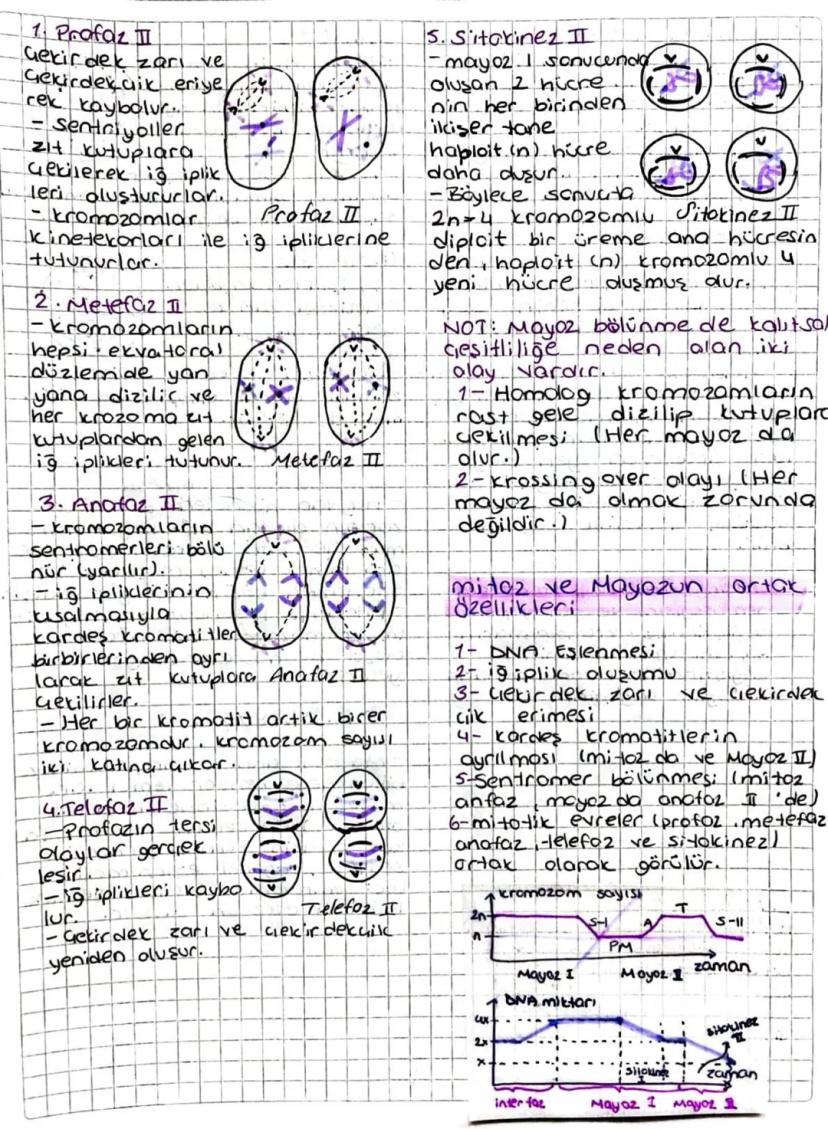 1. Profaz II
Çekirdek zarı ve
çekirdekçik eriye
rek kaybolur.
- Sentriyoller
zıt kutuplara
çekilerek iğ iplik
leri oluştururlar.
Profaz II
- kromozomlar
kinetekorları ile iğ ipliklerine
tutunurlar.
2. Metefaz II
- kromozomların
hepsi ekvatoral
düzlemde yan
yana dizilir ve
her krozoma zıt
kutuplardan gelen
iğ iplikleri tutunur.
Metefaz II
3. Anafaz II
- kromozomların
sentromerleri bölü
nür (yarılır).
- iğ ipliklerinin
kısalmasıyla
kardeş kromatitler
birbirlerinden ayrı
larak zıt kutuplara
Anafaz II
çekilirler.
- Her bir kromatit artik birer
kromozomdur. kromozom sayısı
iki katına çıkar.
4. Telofaz II
- Profazın tersi
olaylar gerçek
leşir.
- iğ iplikleri kaybo
lur.
Telefoz II
- Çekirdek zarı ve çekirdekçik
yeniden oluşur.
5. Sitokinez II
- mayoz 1 sonucunda
oluşan 2 hücre
nin her birinden
ikişer tane
haploit (n) hücre
daha oluşur.
- Böylece sonuçta
2n=4 kromozomlu
Sitokinez II
diploit bir üreme ana hücresin
den, haploit (n) kromozomlu 4
yeni hücre oluşmuş olur.
NOT: Mayoz bölünme de kalıtsal
çeşitliliğe neden olan iki
olay vardır.
1- Homolog kromozomların
rast gele dizilip kutuplara
çekilmesi (Her mayoz da
olur.)
2- krossing over olayı (Her
mayoz da olmak zorunda
değildir.)
mitoz ve Mayozun ortak
özellikleri
1- DNA Eşlenmesi
2- iğ iplik oluşumu
3- çekirdek zarı ve çekirdek
çik erimesi
4- kardeş kromatitlerin
ayrılması (mitoz da ve Mayoz II)
5- Sentromer bölünmesi (mitoz
anfaz, mayoz da anafaz II 'de)
6- mitotik evreler (profaz, metefaz
anafaz, telefoz ve sitokinez)
ortak olarak görülür.
kromozom sayısı
2n
n
S-I
PM
A
T
S-II
Mayoz I
Mayoz II
zaman
DNA miktarı
4x
2x
x
sitokinez I
sitokinez II
zaman
interfaz
Mayoz I
Mayoz II